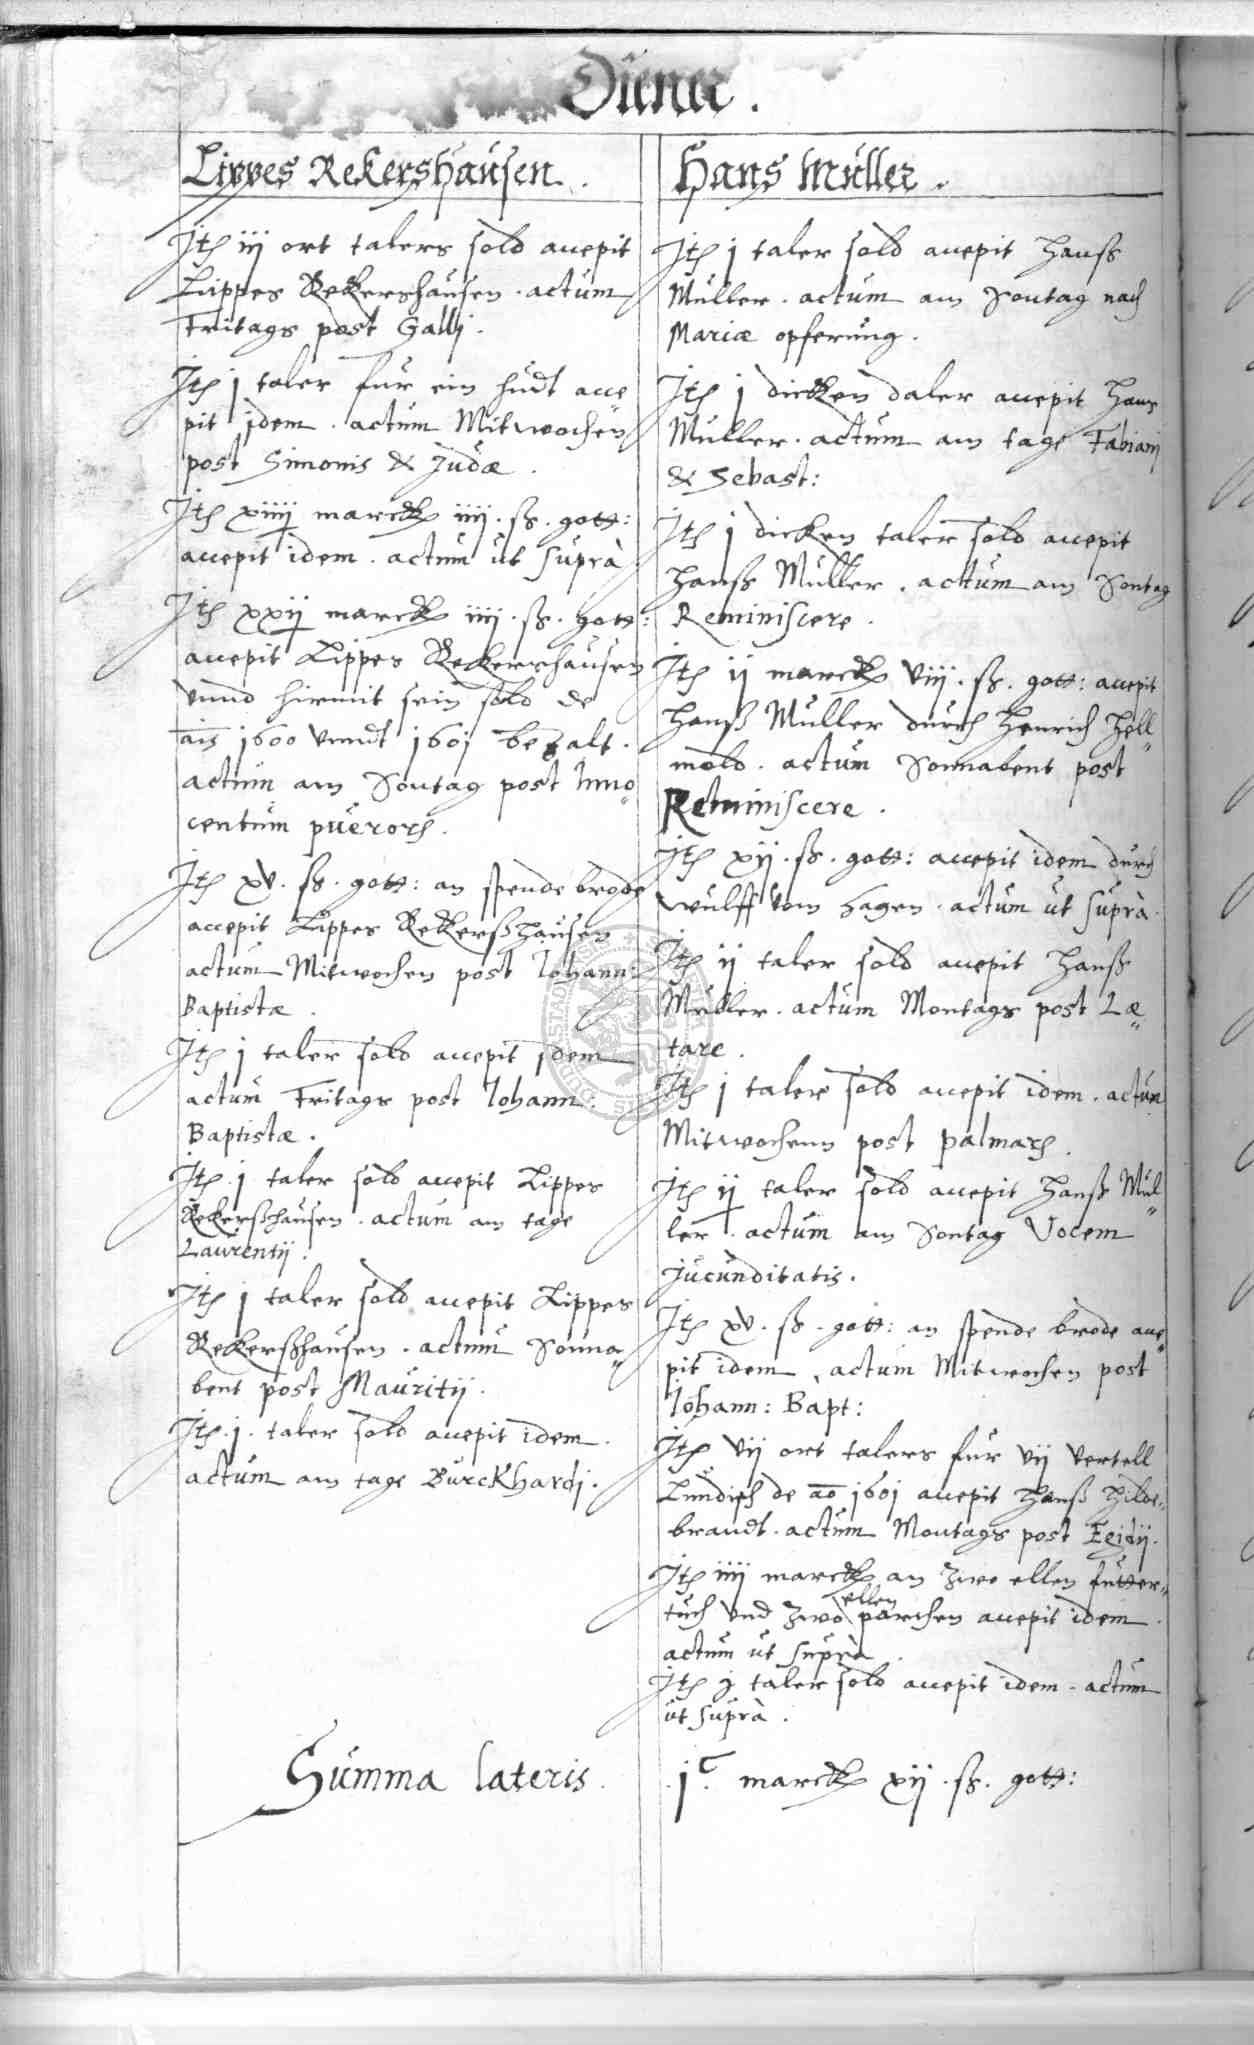 Diener.
Lippes Rekershausen.
Jtem iij ort talers sold accepit
Lippes Rekershausen. actum
Fritags post Galli.
Jtem j taler fur ein hudt acce
pit idem. actum Mitwochen
post Simonis & Judæ.
Jtem xiiij marck iiij. ß. gott:
accepit idem. actum ut suprà
Jtem xxij marck iiij. ß. gott:
accepit Lippes Rekershausen
vnnd hirmit sein sold de
ais 1600 vnndt 1601 bezalt.
actum am Sontag post Inno„
centum pueror.
Jtem xv. ß. gott: an spende brode
accepit Lippes Rekerßhausen
actum Mitwochen post Johann:
Baptistæ.
Jtem j taler sold accepit idem
actum Fritags post Johann:
Baptistæ.
Jtem j taler sold accepit Lippes
Rekerßhausen. actum am tage
Laurentij.
Jtem j taler sold accepit Lippes
Rekerßhausen. actum Sonna„
bent post Mauritij.
Jtem. j. taler sold accepit idem.
actum am tage Burckhardj.
Hans Müller.
Jtem j taler sold accepit Hanß
Müller. actum am Sontag nach
Mariæ opferung.
Jtem j dicken daler accepit Hans
Müller. actum am tage Fabianj
& Sebast:
Jtem j dicken taler sold accepit
Hanß Müller. actum am Sontag
Reminiscere.
Jtem ij marck viij. ß. gott: accepit
Hanß Müller durch Henrich Hell„
mold. actum Sonnabent post
Reminiscere.
Jtem xij. ß. gott: accepit idem durch
Wulff vom Hagen. actum ut suprà.
Jtem ij taler sold accepit Hanß
Müller. actum Montags post Læ„
tare.
Jtem j taler sold accepit idem. actum
Mitwochenn post palmar.
Jtem ij taler sold accepit Hanß Mül„
ler. actum am Sontag Vocem
jucunditatis.
Jtem xv. ß. gott: an spende brode acce„
pit idem, actum Mitwochen post
Johann: Bapt:
Jtem vij ort talers fur vij vertell
Lundisch de ao 1601 accepit Hanß Hilde„
brandt. actum Montags post Egidij.
Jtem iiij marck an zwo ellen futter„
tuch vnd zwo ellen parchen accepit idem.
actum ut suprà.
Jtem j taler sold accepit idem. actum
ut suprà.
Summa lateris. jc. marck xij. ß. gott: